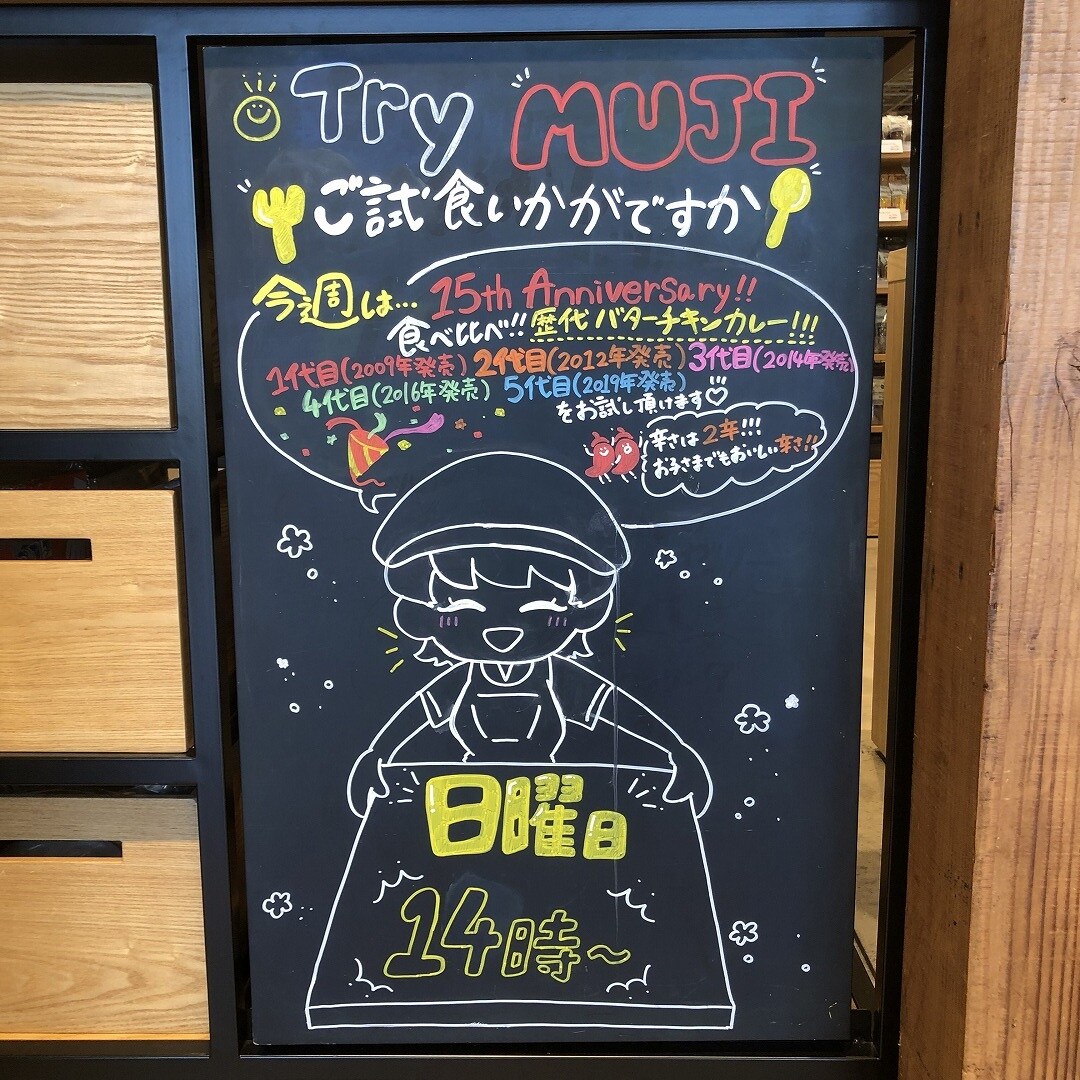 Try MUJI
ご試食いかがですか
今週は... 15th Anniversary!!
食べ比べ!! 歴代バターチキンカレー!!!
1代目(2009年発売) 2代目(2012年発売) 3代目(2014年発売)
4代目(2016年発売) 5代目(2019年発売)
をお試し頂けます♡
辛さは2辛!!!
お子さまでもおいしい辛さ!!
日曜日
14時〜